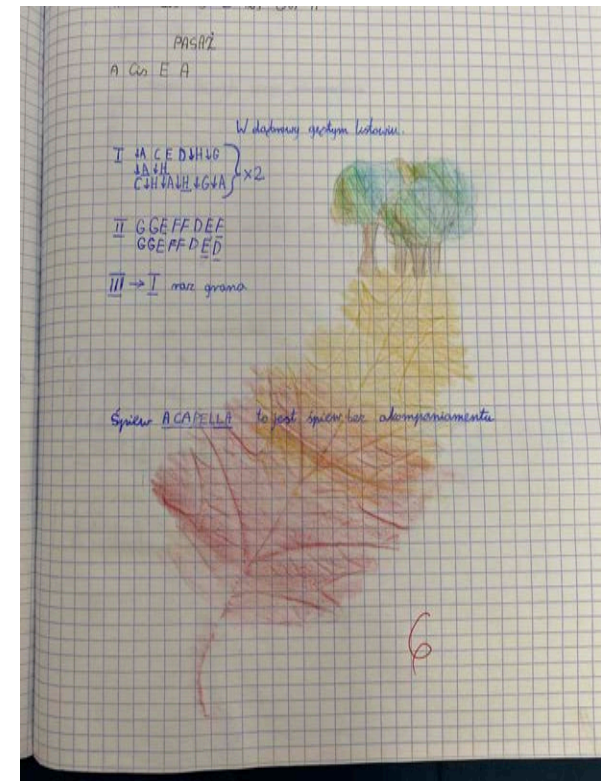 PASAŻ
A Cis E A
W dąbrowy gęstym listowiu.
I ↓A C E D↓H↓G
↓A↓H } x2
C↓H↓A↓H↓G↓A
II G G E F F D E F
G G E F F D E D
III → I raz grana
Śpiew A CAPELLA to jest śpiew bez akompaniamentu
6